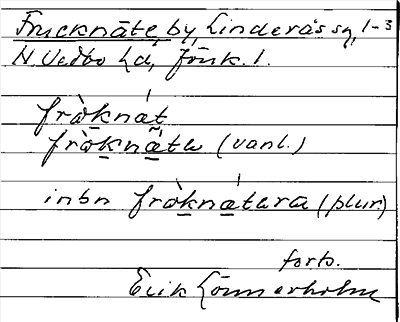 Frucknäte by, Linderås sn, 1-3
N. Vedbo hd, Jönk. l.
fròknát
fròknätə (vanl.)
inbn fròknätara (plur.)
forts.
Erik Lönnerholm